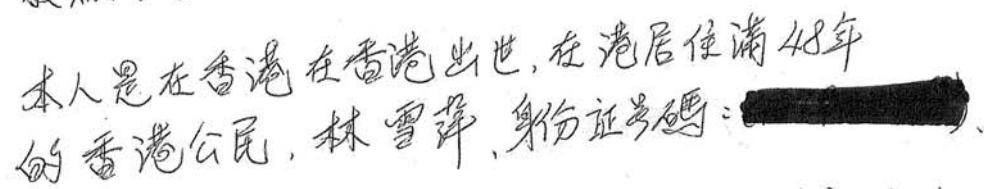 本人是在香港在香港出世,在港居住滿48年
的香港公民,林雪萍、身份证号碼: